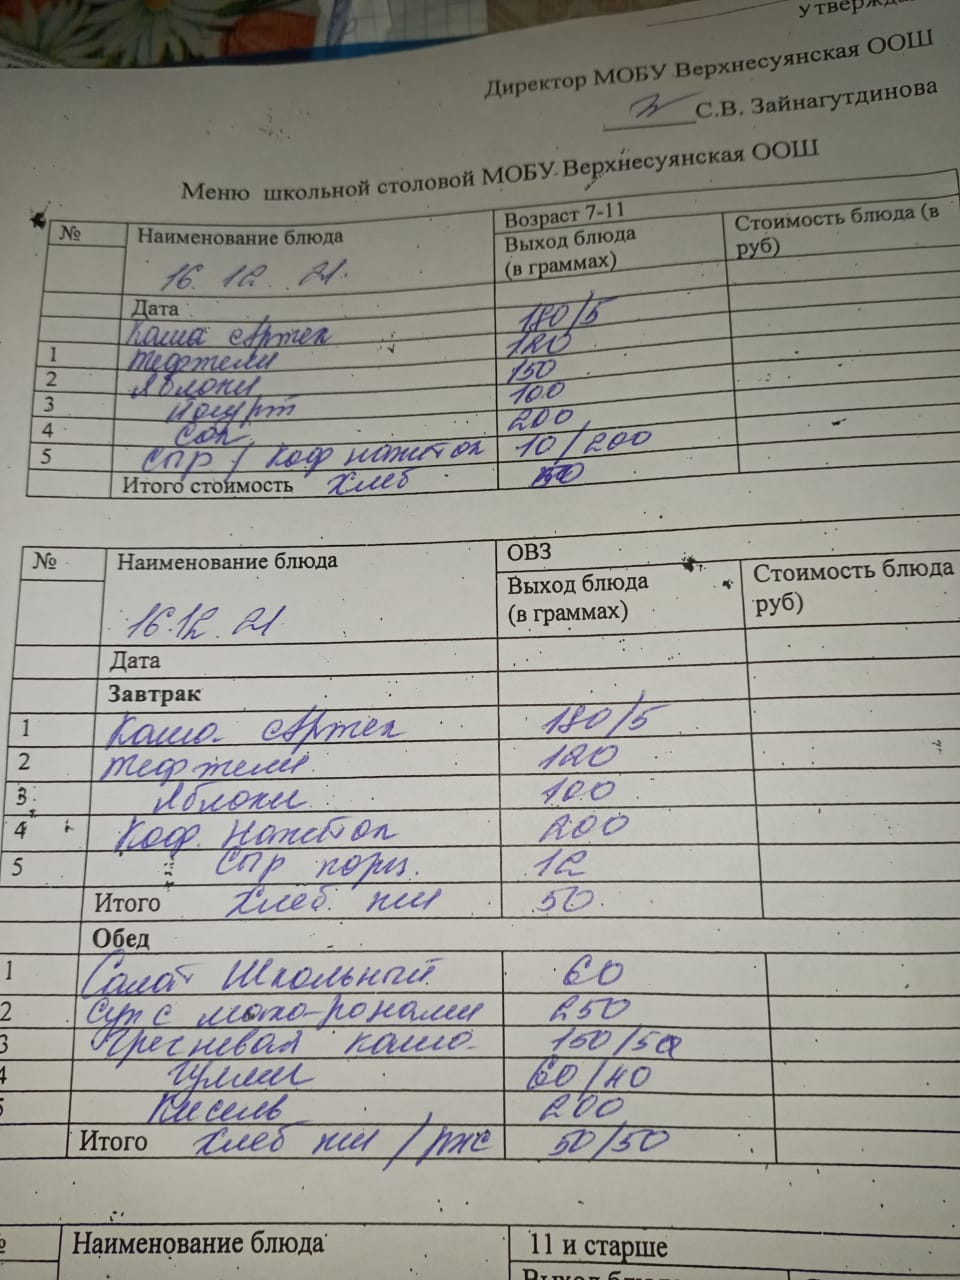 Утвержда
Директор МОБУ Верхнесуянская ООШ
С.В. Зайнагутдинова
Меню школьной столовой МОБУ Верхнесуянская ООШ
№ Наименование блюда Возраст 7-11
Выход блюда (в граммах) Стоимость блюда (в руб)
16.12.21.
Дата
Каша Артек 180/5
1 Тефтели 120
2 Яблоки 150
3 Йогурт 100
4 Сок 200
5 Спр / Коф напиток 10/200
Итого стоимость Хлеб
№ Наименование блюда ОВЗ
Выход блюда (в граммах) Стоимость блюда руб)
16.12.21
Дата
Завтрак
1 Каша Артек 180/5
2 Тефтели 120
3 Яблоки 100
4 Коф. Напиток 200
5 Спр порц. 12
Итого Хлеб пш 50
Обед
1 Салат Школьный 60
2 Суп с мака-ронами 250
3 Гречневая каша 150/5
4 Гуляш 60/40
5 Кисель 200
Итого Хлеб пш / рж 50/50
Наименование блюда 11 и старше